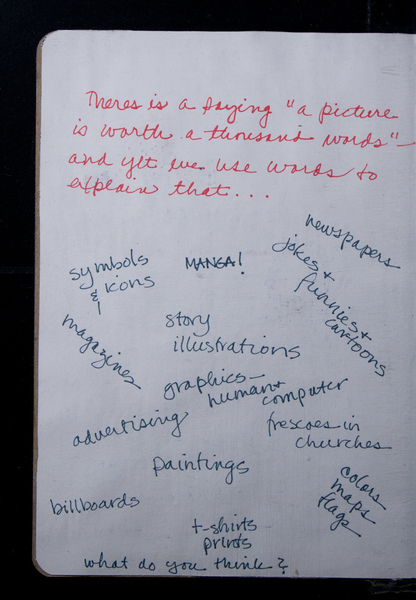 Theres is a saying "a picture
is worth a thousand words" -
and yet we use words to
explain that...
newspapers
symbols
& icons
MANGA!
jokes +
funnies +
cartoons
magazines
story
illustrations
graphics -
human +
computer
advertising
frescoes in
churches
paintings
colors
maps
flags
billboards
t-shirts
prints
what do you think?